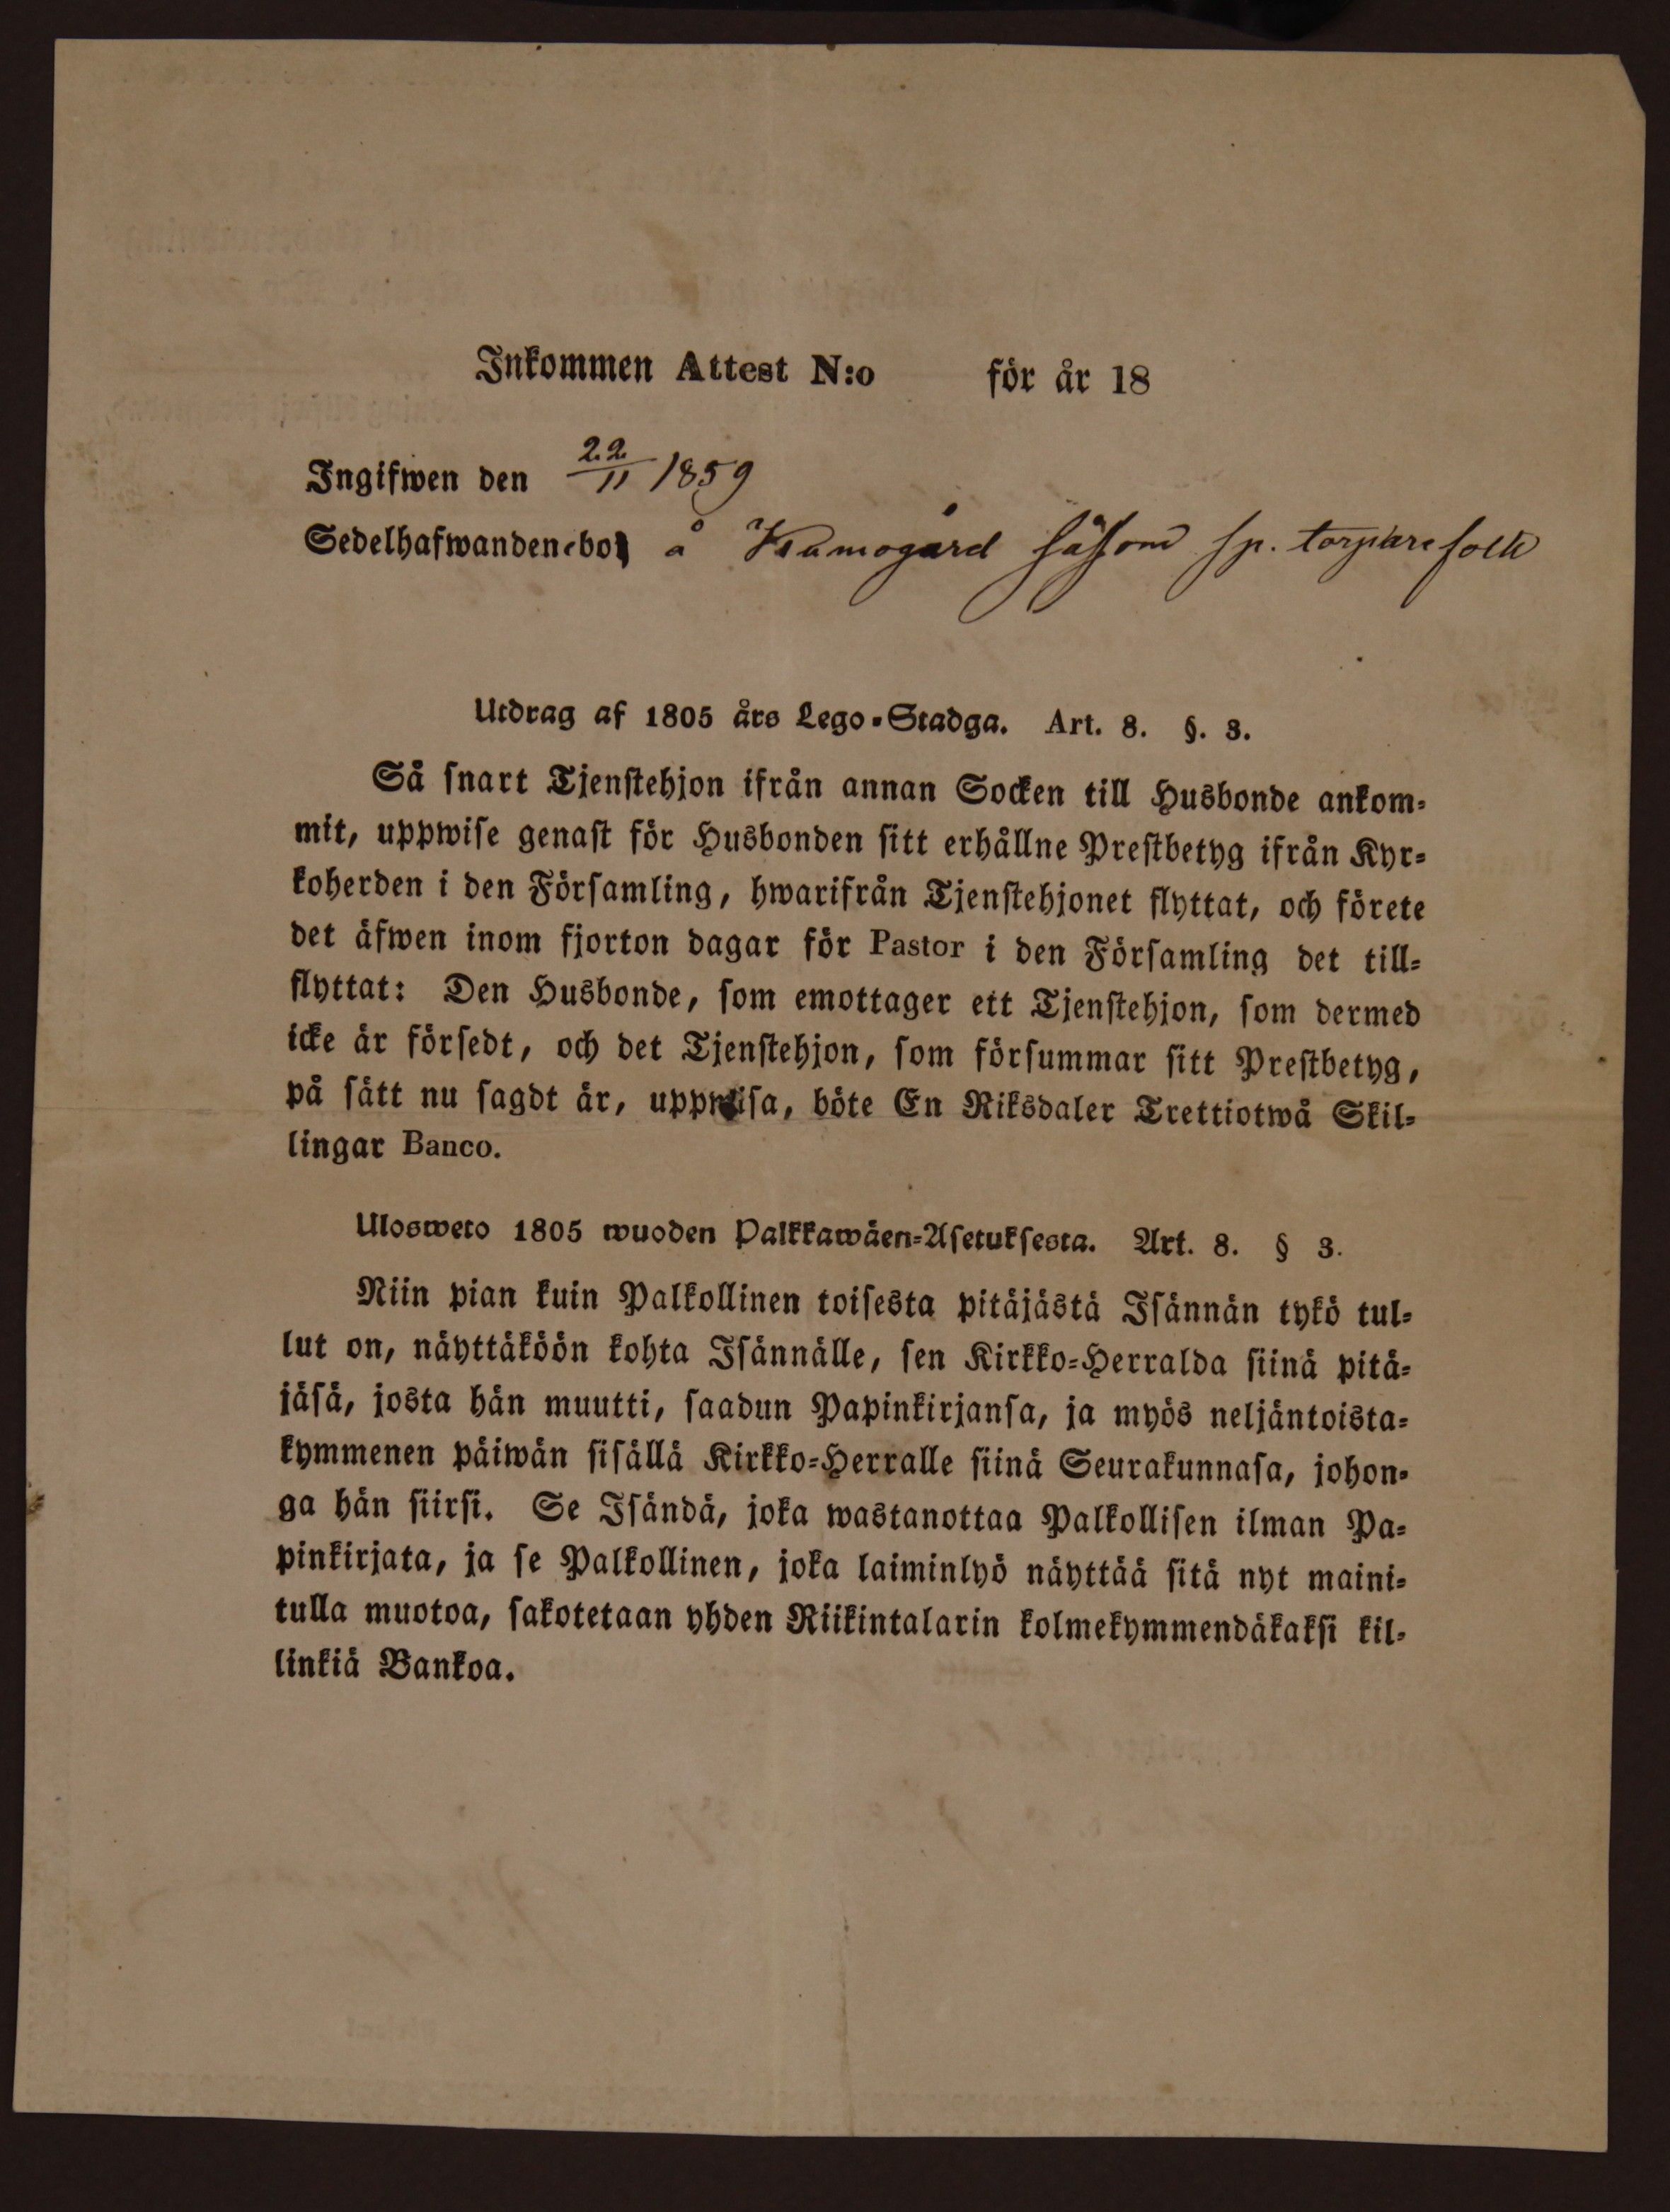 Inkommen Attest N:o för år 18
Ingifwen den 22/11 1859
Sedelhafwanden-bor å såsom sp. torparefolk
Utdrag af 1805 års Lego-Stadga. Art. 8. §. 3.
Så snart Tjenstehjon ifrån annan Socken till Husbonde ankom-
mit, uppwise genast för Husbonden sitt erhållne Prestbetyg ifrån Kyr-
koherden i den Församling, hwarifrån Tjenstehjonet flyttat, och förete
det äfwen inom fjorton dagar för Pastor i den Församling det till-
flyttat: Den Husbonde, som emottager ett Tjenstehjon, som dermed
icke är försedt, och det Tjenstehjon, som försummar sitt Prestbetyg,
på sätt nu sagdt är, uppwisa, böte En Riksdaler Trettiotwå Skil-
lingar Banco.
Ulosweto 1805 wuoden Palkkawäen-Asetuksesta. Art. 8. § 3.
Niin pian kuin Palkollinen toisesta pitäjästä Isännän tykö tul-
lut on, näyttäköön kohta Isännälle, sen Kirkko-Herralda siinä pitä-
jäsä, josta hän muutti, saadun Papinkirjansa, ja myös neljäntoista-
kymmenen päiwän sisällä Kirkko-Herralle siinä Seurakunnasa, johon-
ga hän siirsi. Se Isändä, joka wastanottaa Palkollisen ilman Pa-
pinkirjata, ja se Palkollinen, joka laiminlyö näyttää sitä nyt maini-
tulla muotoa, sakotetaan yhden Riikintalarin kolmekymmendäkaksi kil-
linkiä Bankoa.